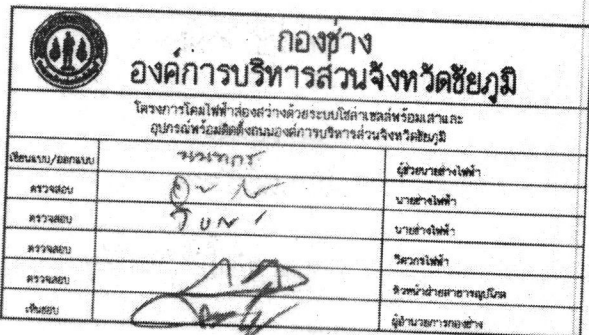 กองช่าง
องค์การบริหารส่วนจังหวัดชัยภูมิ
โครงการโคมไฟฟ้าส่องสว่างด้วยระบบโซล่าเซลล์พร้อมเสาและ
อุปกรณ์พร้อมติดตั้งถนนองค์การบริหารส่วนจังหวัดชัยภูมิ
เขียนแบบ/ออกแบบ ผู้ช่วยนายช่างไฟฟ้า
ตรวจสอบ นายช่างไฟฟ้า
ตรวจสอบ นายช่างไฟฟ้า
ตรวจสอบ วิศวกรไฟฟ้า
ตรวจสอบ หัวหน้าฝ่ายสาธารณูปโภค
เห็นชอบ ผู้อำนวยการกองช่าง